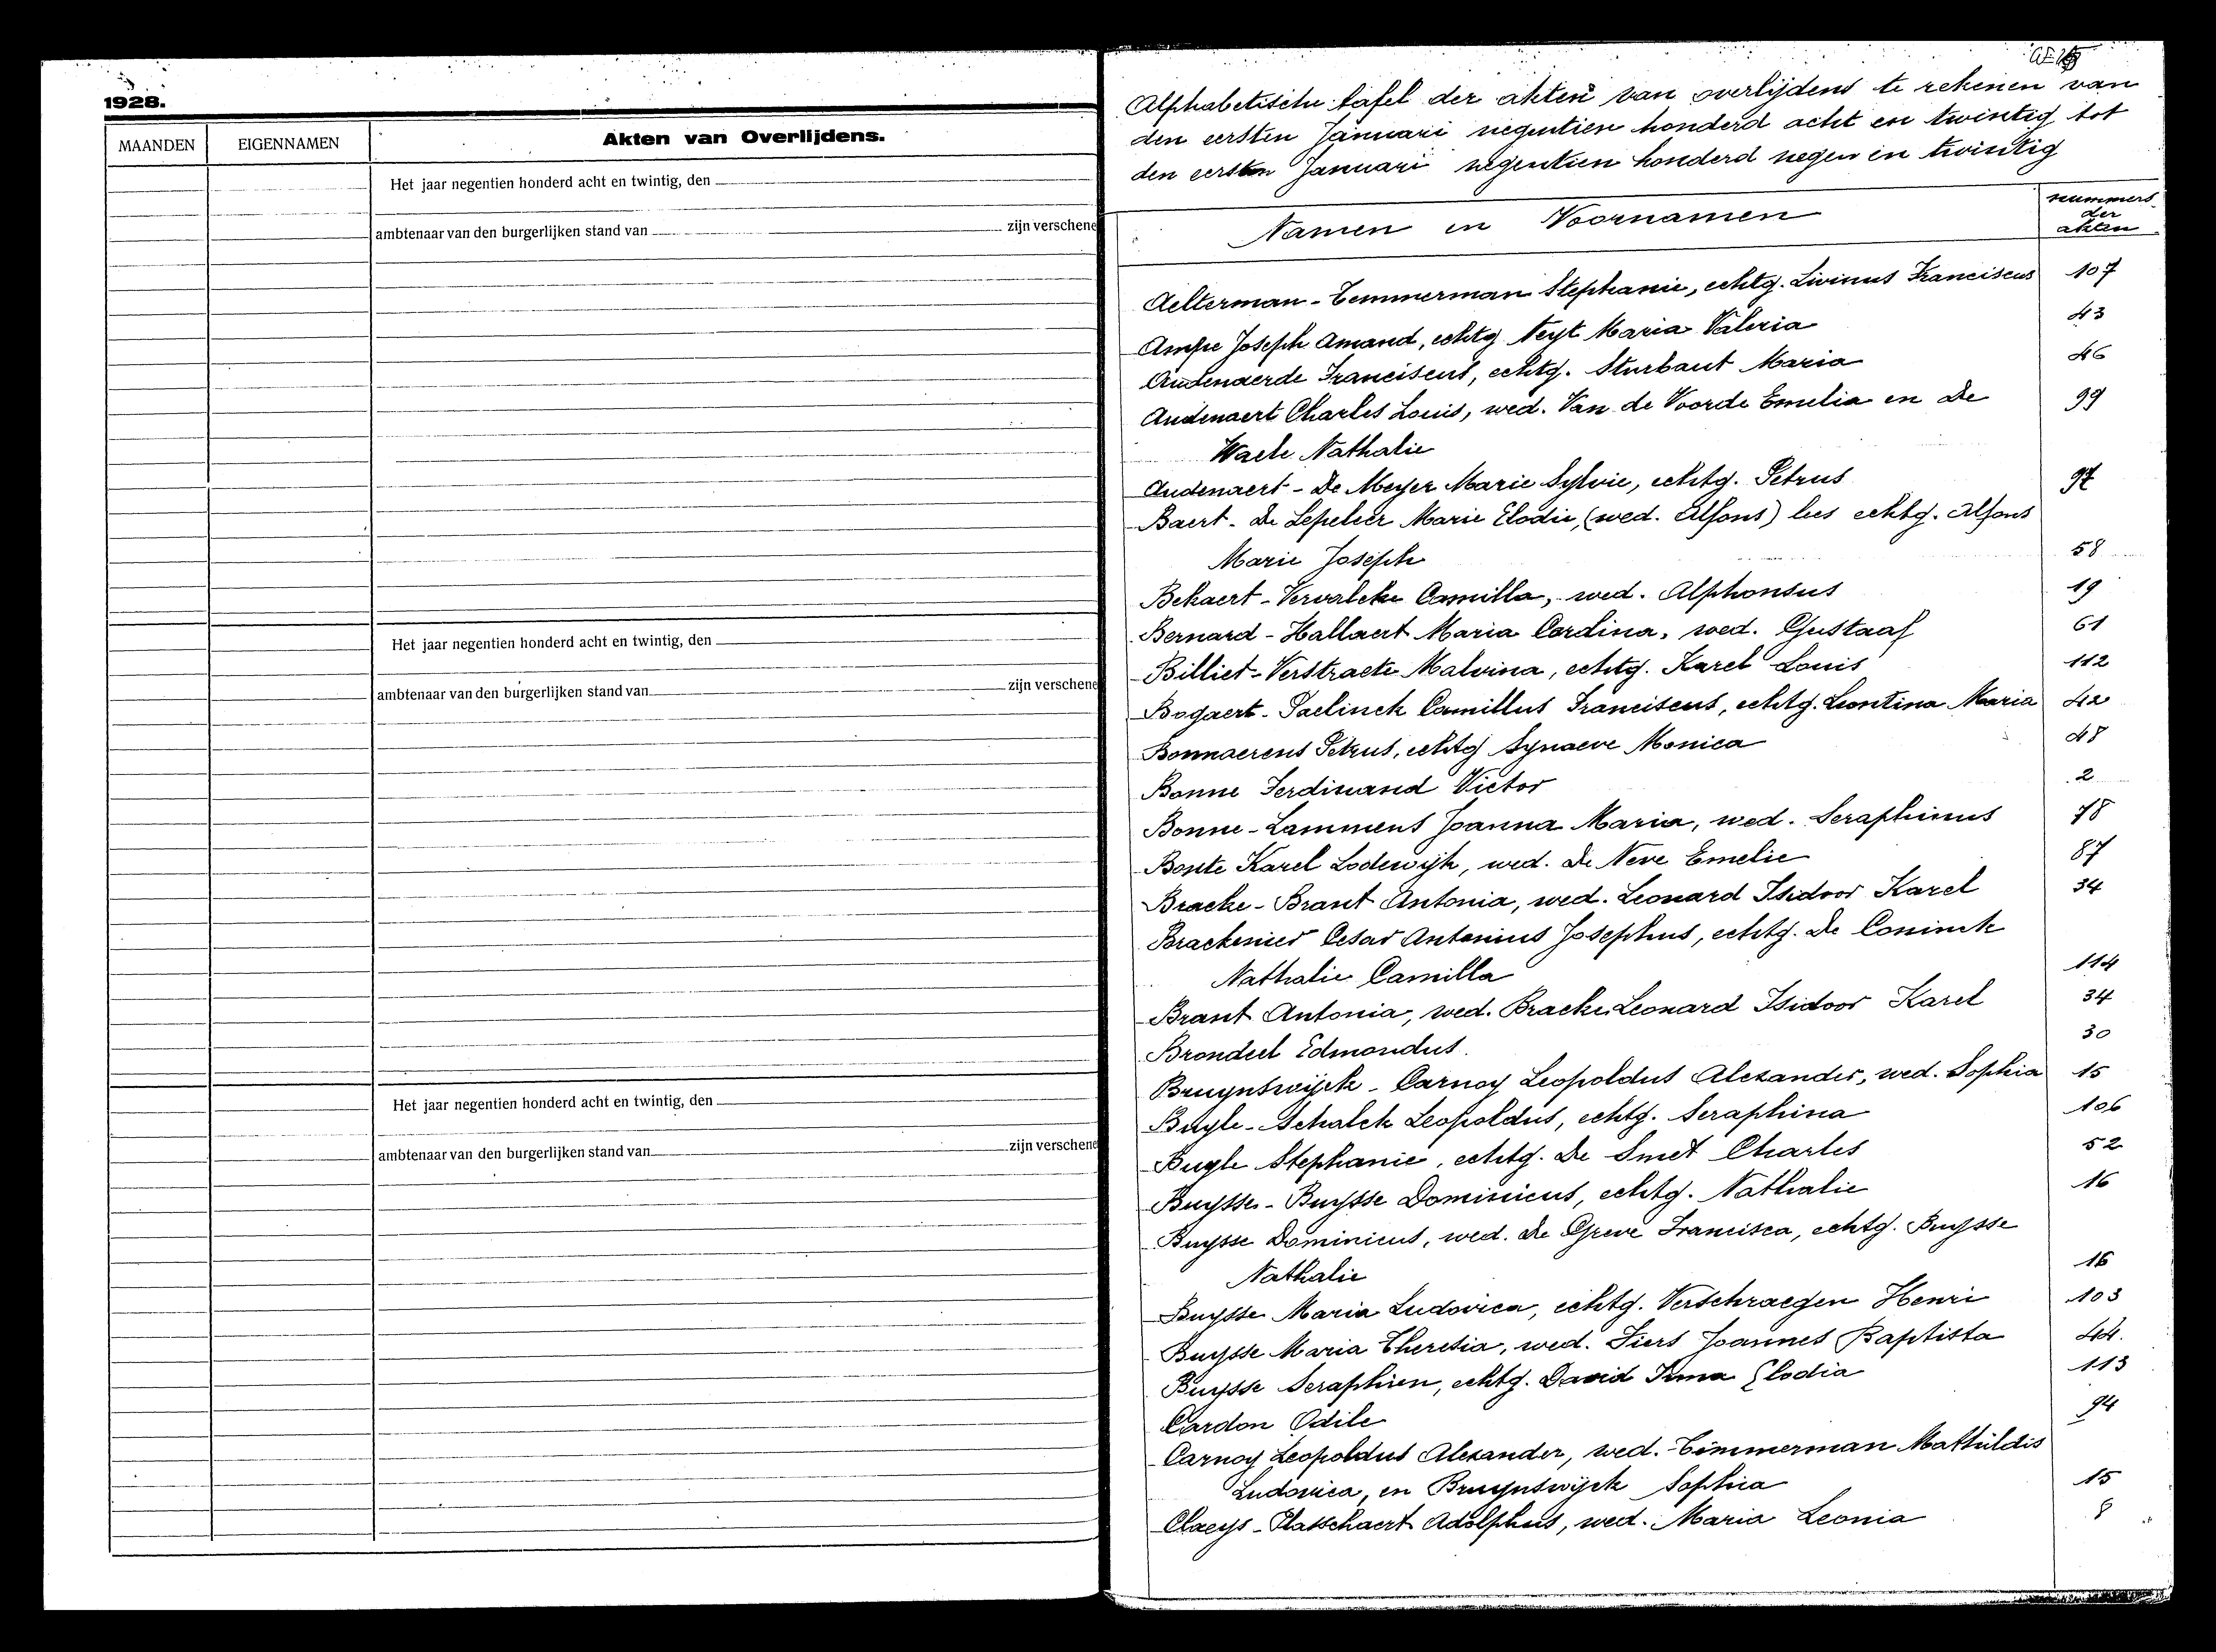 1928.
MAANDEN EIGENNAMEN Akten van Overlijdens.
Het jaar negentien honderd acht en twintig, den
ambtenaar van den burgerlijken stand van zijn verschene
Het jaar negentien honderd acht en twintig, den
ambtenaar van den burgerlijken stand van zijn verschene
Het jaar negentien honderd acht en twintig, den
ambtenaar van den burgerlijken stand van zijn verschene
Alphabetische tafel der akten van overlijdens te rekenen van
den eersten Januari negentien honderd acht en twintig tot
den eersten Januari negentien honderd negen en twintig
Namen en Voornamen nummers der akten
Aelterman - Temmerman Stephanie, echtg. Livinus Franciscus 107
Ampe Joseph Amand, echtg Neyt Maria Valeria 43
Audenaerde Franciscus, echtg. Sturbaut Maria 46
Audenaert Charles Louis, wed. Van de Voorde Emelia en De 99
Waele Nathalie
Audenaert - De Meyer Marie Sylvie, echtg. Petrus 97
Baert - De Lepeleer Marie Elodie, (wed. Alfons) lees echtg. Alfons
Marie Joseph 58
Bekaert - Vervalcke Camilla, wed. Alphonsus 19
Bernard - Hallaert Maria Cordina, wed. Gustaaf 61
Billiet - Verstraete Malvina, echtg. Karel Louis 112
Bogaert - Paelinck Camillus Franciscus, echtg. Leontina Maria 42
Bonnaerens Petrus, echtg Synaeve Monica 48
Bonne Ferdinand Victor 2
Bonne - Lammens Joanna Maria, wed. Seraphinus 78
Bonte Karel Lodewijk, wed. De Neve Emelie 87
Bracke - Brant Antonia, wed. Leonard Isidoor Karel 34
Brackenier Cesar Antonius Josephus, echtg. De Coninck
Nathalie Camilla 114
Brant Antonia, wed. Bracke Leonard Isidoor Karel 34
Brondeel Edmondus. 30
Bruynswijck - Carnoy Leopoldus Alexander, wed. Sophia 15
Buyle - Schalck Leopoldus, echtg. Seraphina 106
Buyle Stephanie, echtg. De Smet Charles 52
Buysse - Buysse Dominicus, echtg. Nathalie 16
Buysse Dominicus, wed. De Greve Francisca, echtg. Buysse
Nathalie 16
Buysse Maria Ludovica, echtg. Verschraegen Henri 103
Buysse Maria Theresia, wed. Fiers Joannes Baptista 44.
Buysse Seraphien, echtg. David Irma Elodia 113
Cardon Odile 94
Carnoy Leopoldus Alexander, wed. Timmerman Mathildis
Ludovica, en Bruynswijck Sophia 15
Claeys - Platschaert Adolphus, wed. Maria Leonia 8